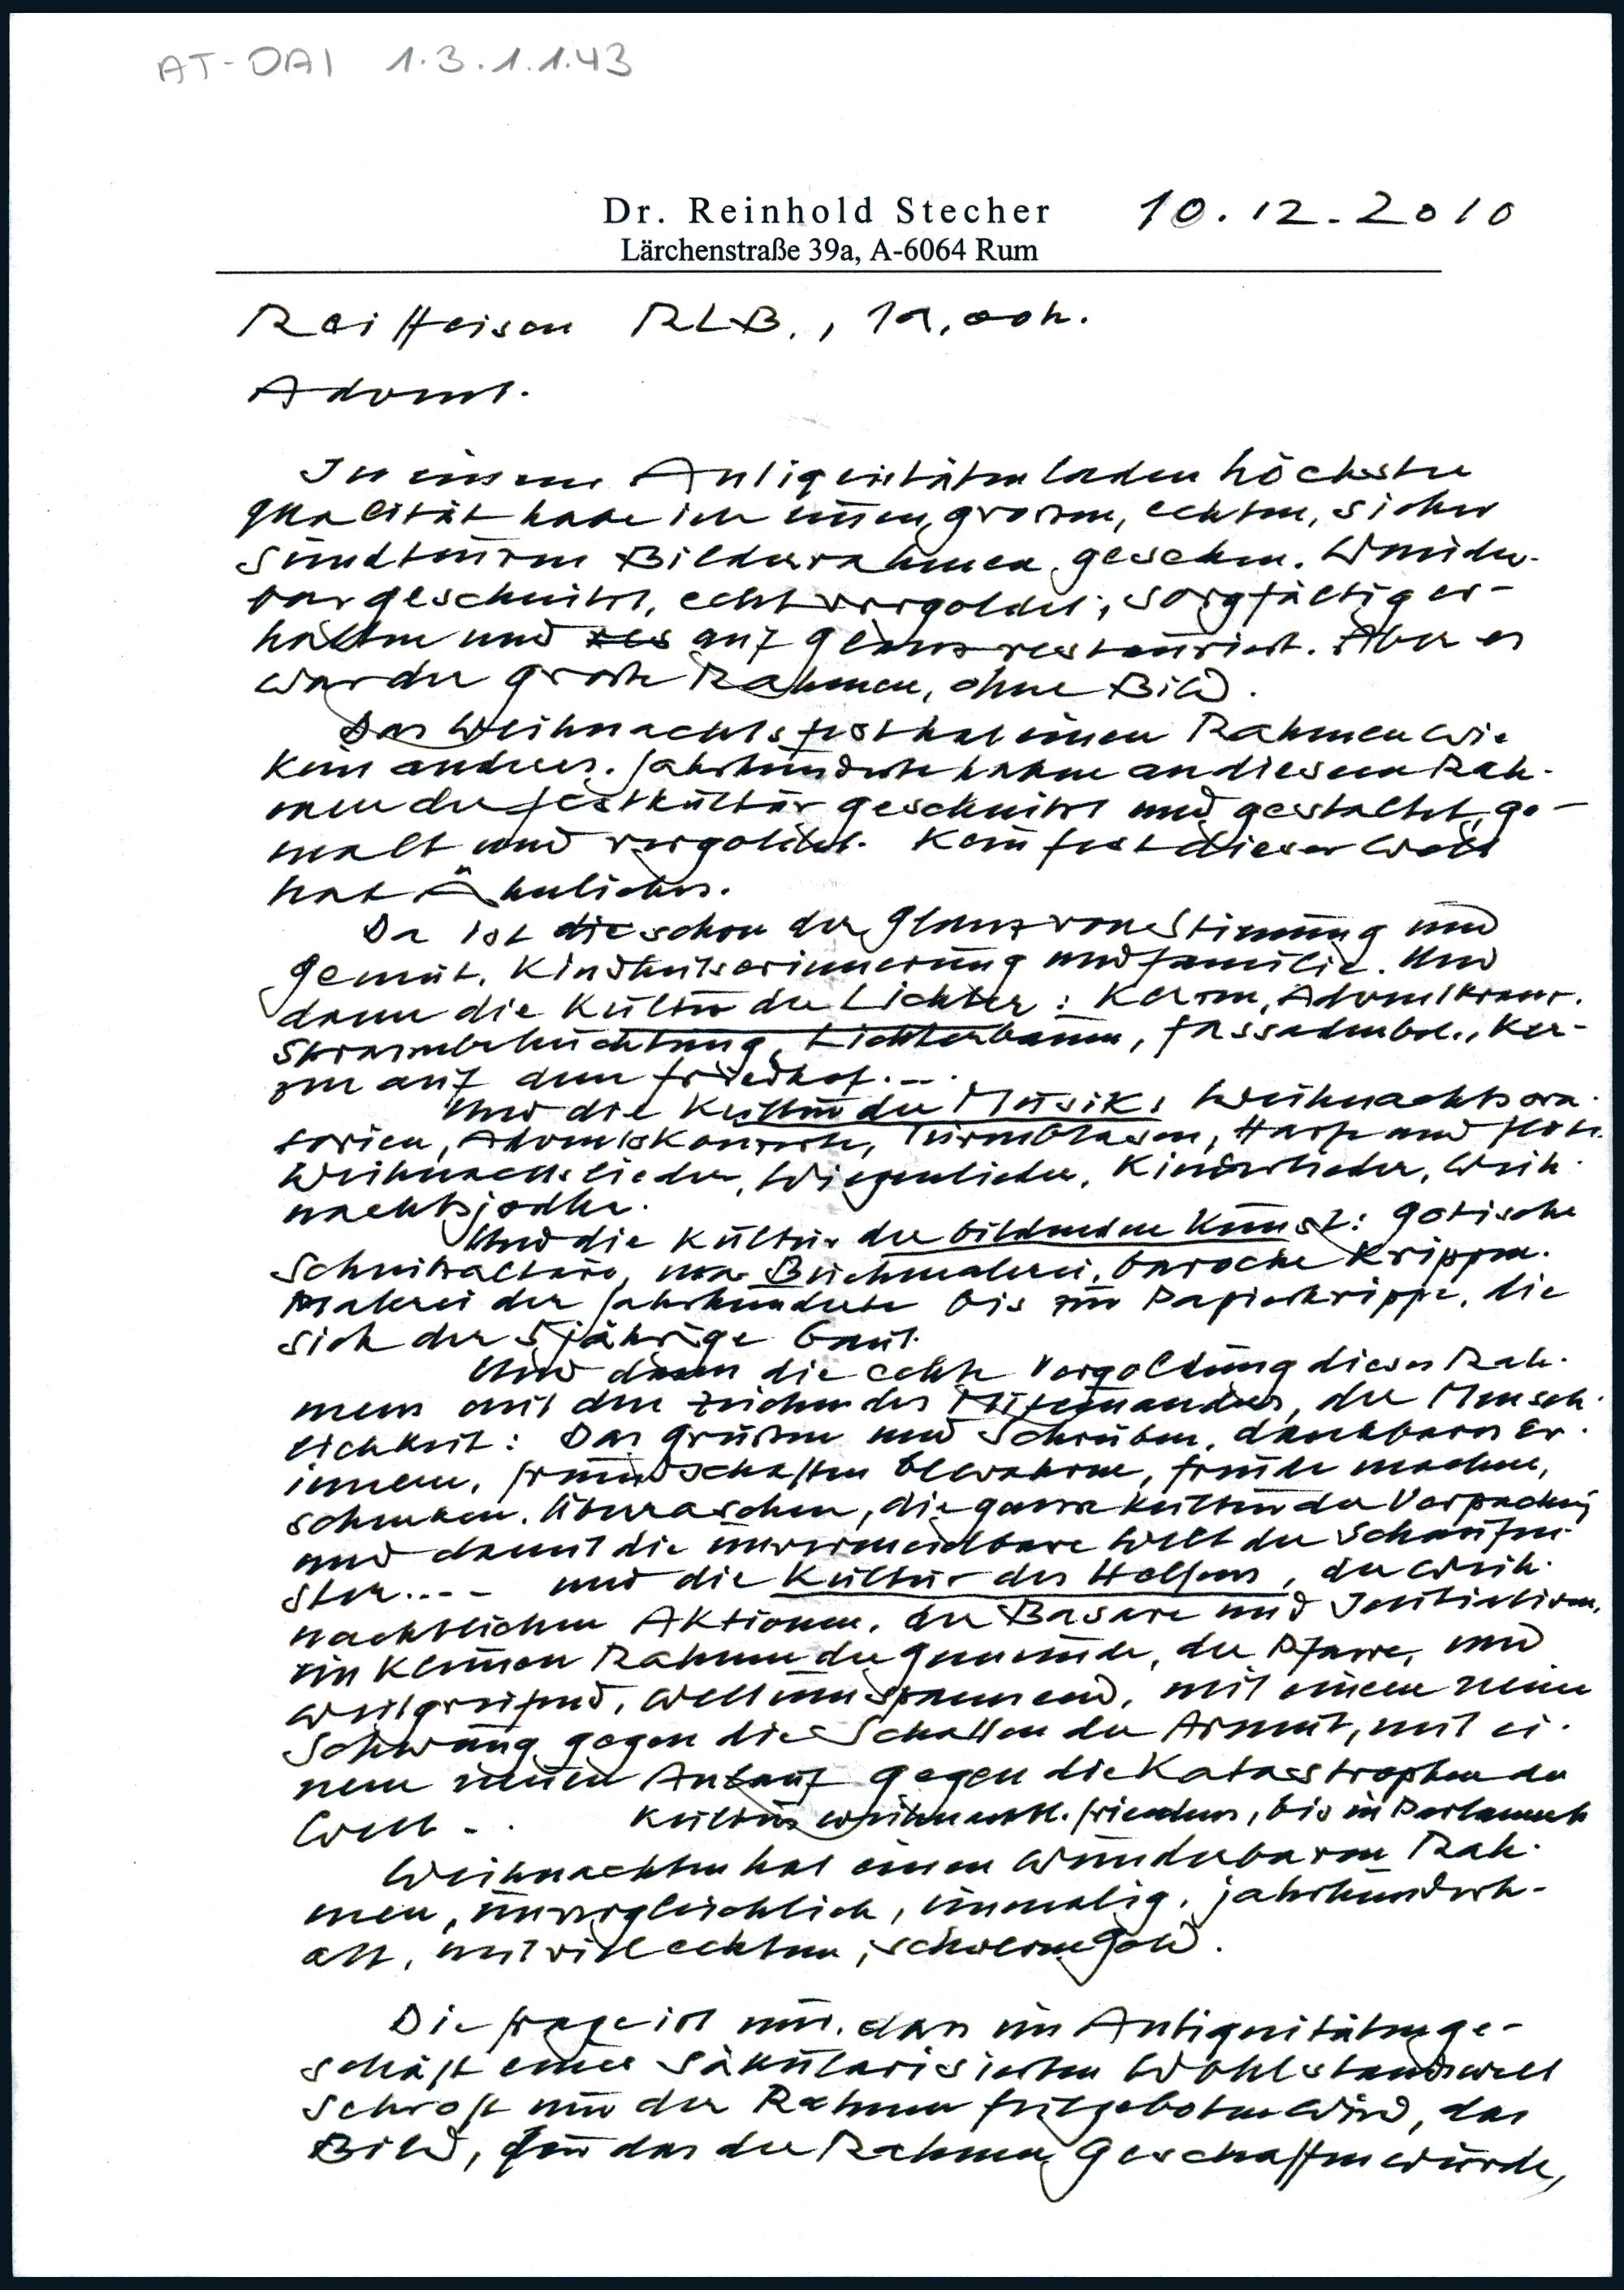 AT-DAI 1.3.1.1.43
Dr. Reinhold Stecher 10.12.2010
Lärchenstraße 39a, A-6064 Rum
Raiffeisen RLB.,
Advent.
In einem Antiquitätenladen höchster
Qualität habe ich einen grossen, echten, sicher
sündteuren Bilderrahmen gesehen. Wunder-
bar geschnitzt, echt vergoldet, sorgfältig er-
halten und auf Glanz restauriert. Aber es
war der große Rahmen, ohne Bild.
Das Weihnachtsfest hat einen Rahmen wie
kein anderes. Jahrhunderte haben an diesem Rah-
men der Festkultur geschnitzt und gestaltet, ge-
malt und vergoldet. Kein Fest dieser Welt
hat Ähnliches.
Da ist die schon der Glanz von Stimmung und
Gemüt, Kindheitserinnerung und Familie. Und
dann die Kultur der Lichter: Kerzen, Adventkranz.
Strassenbeleuchtung, Lichterbaum, Fassadenbel., Ker-
zen auf dem Friedhof...
Und die Kultur der Musik: Weihnachtsora-
torien, Adventskonzerte, Turmblasen, Harfe und Flöte
Weihnachtslieder, Wiegenlieder, Kinderlieder, Weih-
nachtsjodler.
Und die Kultur der bildenden Kunst: Gotische
Schnitzaltäre, Buchmalerei, barocke Krippen.
Malerei der Jahrhunderte bis zur Papierkrippe, die
sich der 5jährige baut.
Und dann die echte Vergoldung dieses Rah-
mens mit den Zeichen des Miteinanders, der Mensch-
lichkeit: Das Grüßen und Schreiben, dankbares Er-
innern, Freundschaften bewahren, Freude machen,
schenken, überraschen, die ganze Kultur der Verpackung
und damit die unvermeidbare Welt der Schaufen-
ster.... und die Kultur des Helfens, der weih-
nachtlichen Aktionen, der Basare und Initiativen,
im kleinen Rahmen der Gemeinde, der Pfarre, und
weitgreifend, weltumspannend, mit einem neuen
Schwung gegen die Schatten der Armut, mit ei-
nem neuen Anlauf gegen die Katastrophen der
Welt.. Kultur weihnachtl. Friedens, bis in Parlamente
Weihnachten hat einen wunderbaren Rah-
men, unvergleichlich, einmalig, jahrhunderte-
alt, mit viel echtem, schwerem Gold.
Die Frage ist nur, dass im Antiquitätenge-
schäft einer säkularisierten Wohlstandswelt
sehr oft nur der Rahmen feilgeboten wird, das
Bild, für das der Rahmen geschaffen wurde,